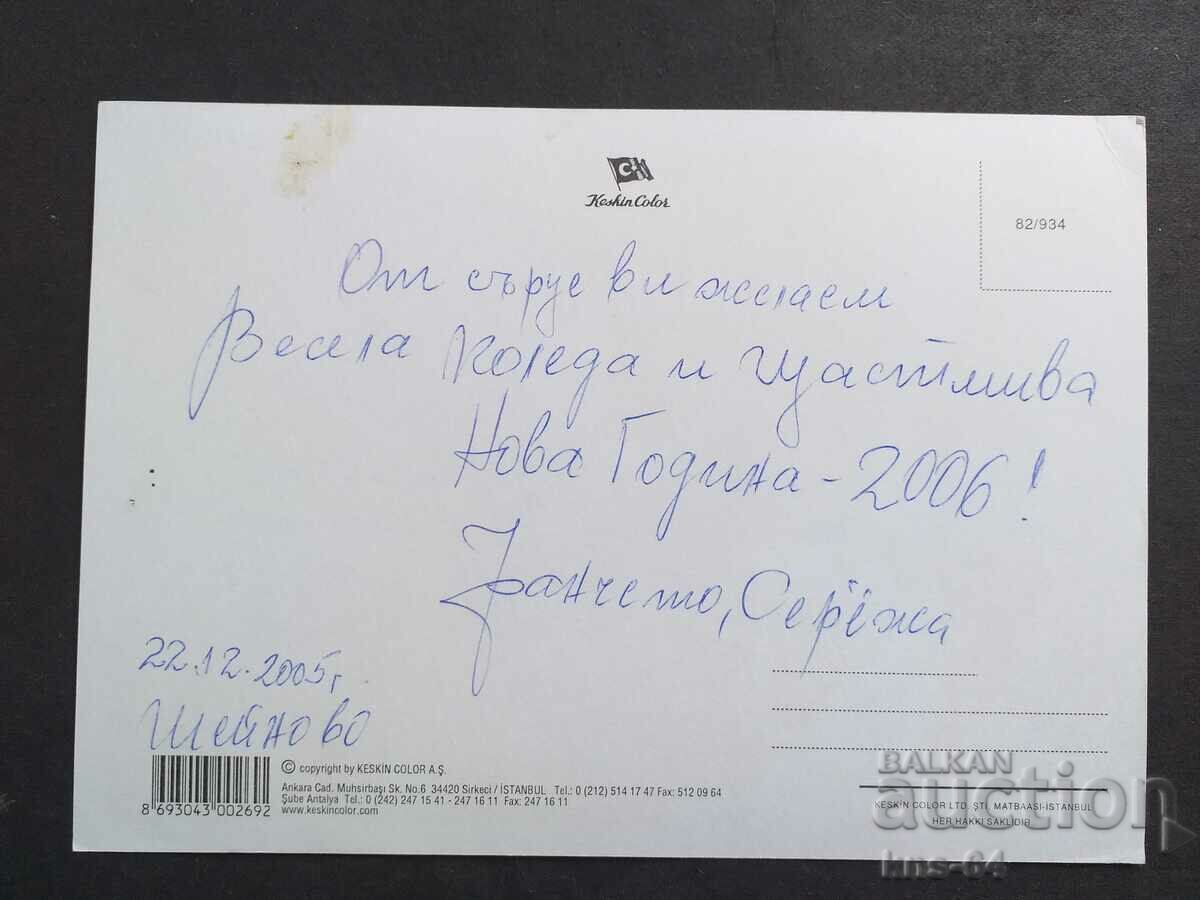 Keskin Color
82/934
От сърце ви желаем
Весела Коледа и щастлива
Нова Година - 2006!
Серёжа
22.12.2005 г
Шейново
© copyright by KESKIN COLOR A.Ş.
Ankara Cad. Muhsirbaşı Sk. No.6 34420 Sirkeci / İSTANBUL Tel.: 0 (212) 514 17 47 Fax: 512 09 64
Şube Antalya Tel.: 0 (242) 247 15 41 - 247 16 11 Fax: 247 16 11
www.keskincolor.com
8 693043 002692
KESKİN COLOR LTD. ŞTİ. MATBAASI-İSTANBUL
HER HAKKI SAKLIDIR
BALKAN
auction
kns-64